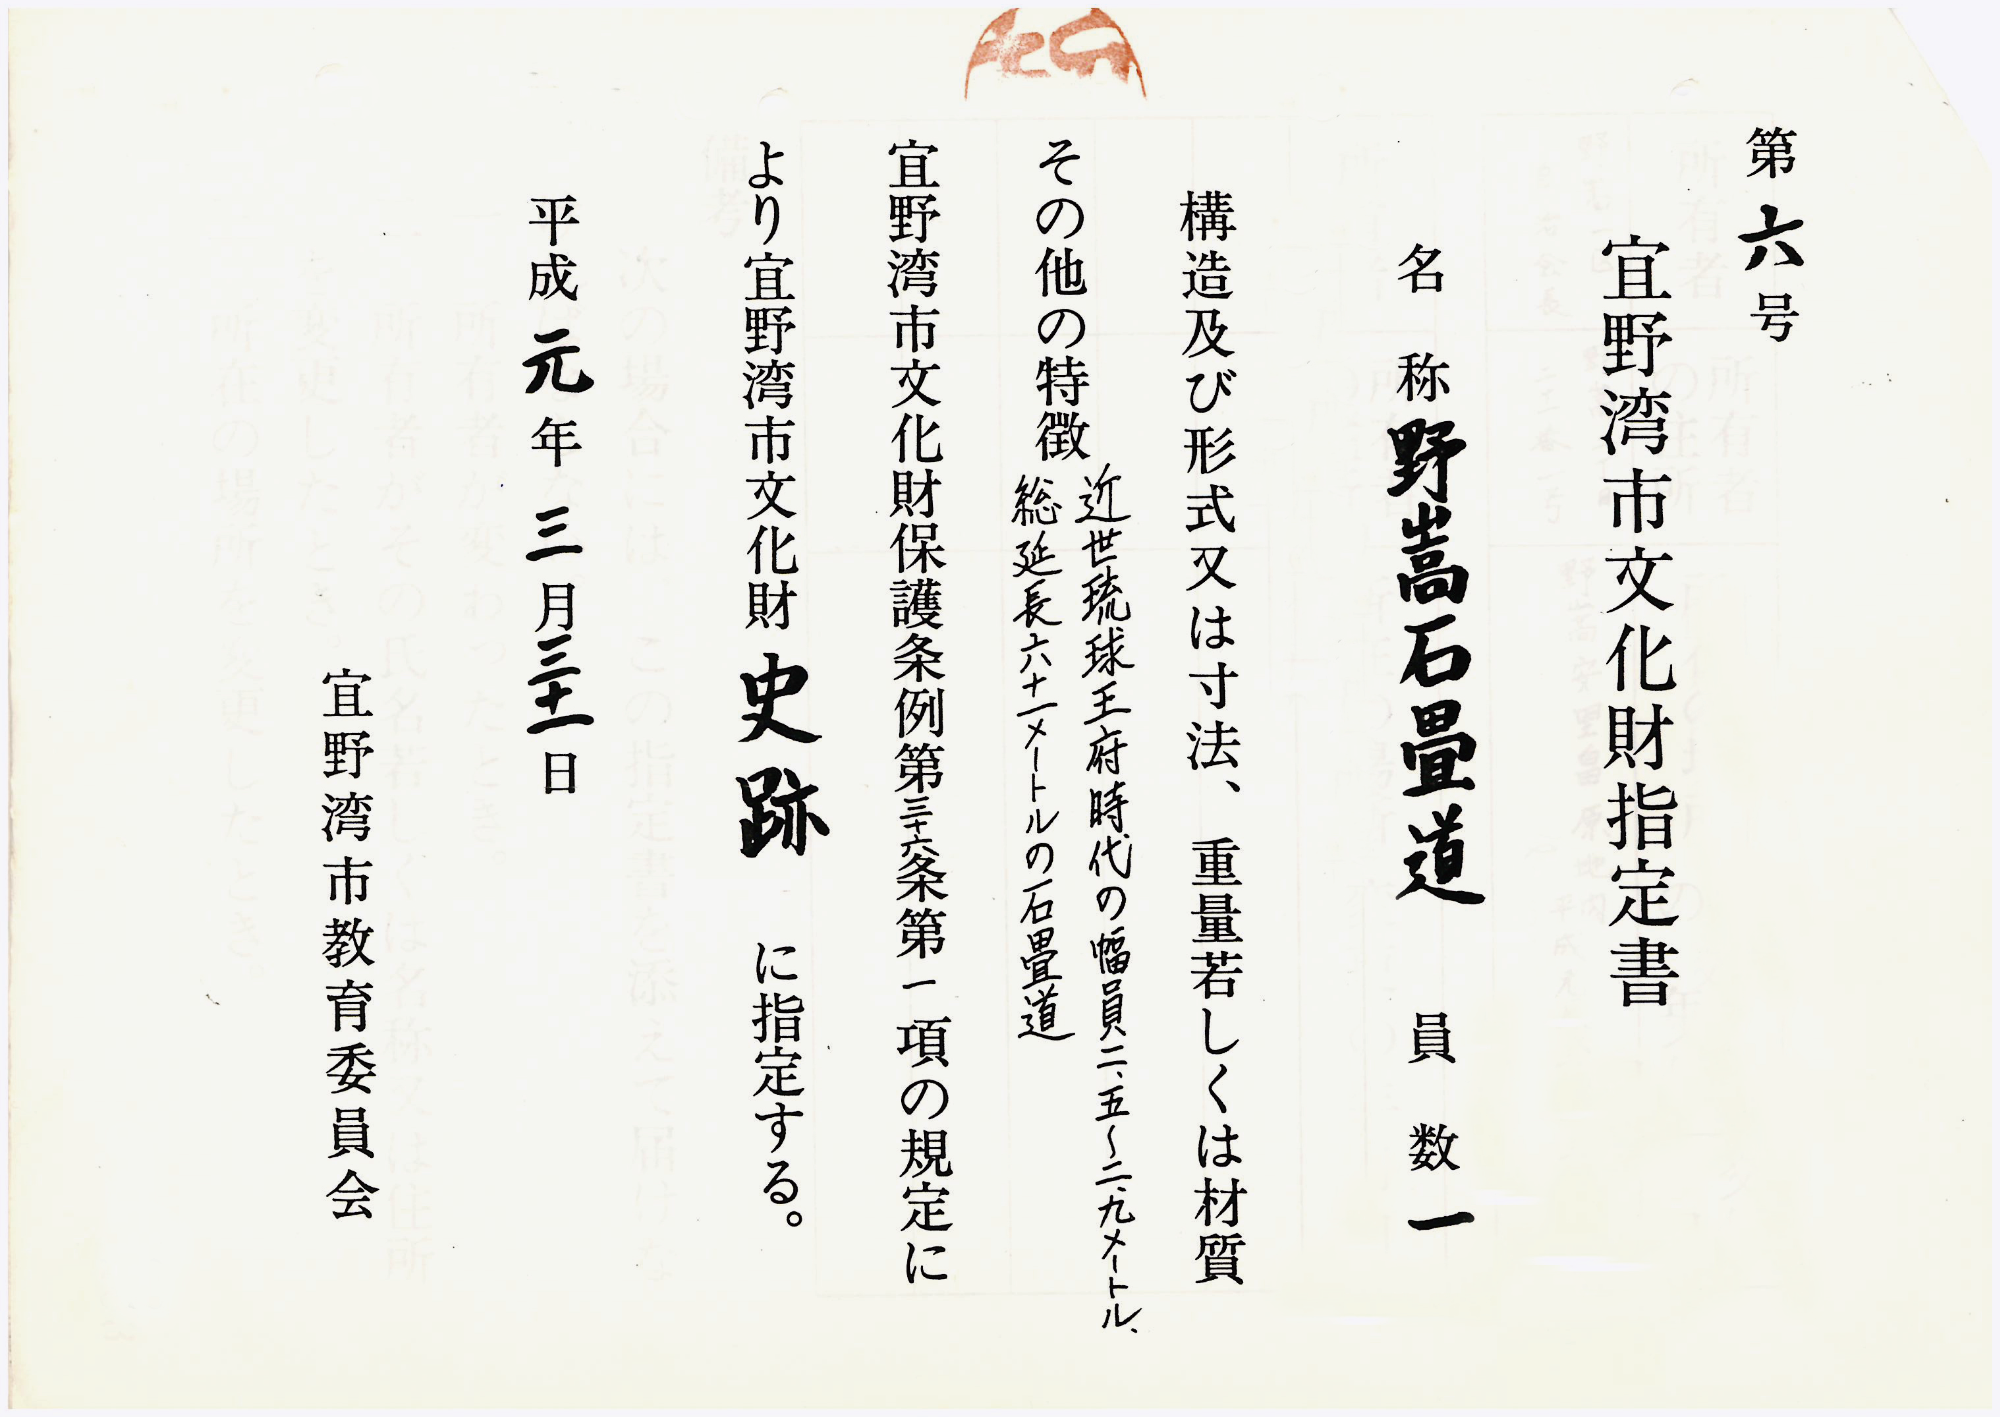 第六号
宜野湾市文化財指定書
名称 野嵩石畳道 員数 一
構造及び形式又は寸法、重量若しくは材質
その他の特徴
近世琉球王府時代の幅員二、五〜二、九メートル、
総延長六十一メートルの石畳道
宜野湾市文化財保護条例第三十六条第一項の規定に
より宜野湾市文化財 史跡 に指定する。
平成元年三月三十一日
宜野湾市教育委員会